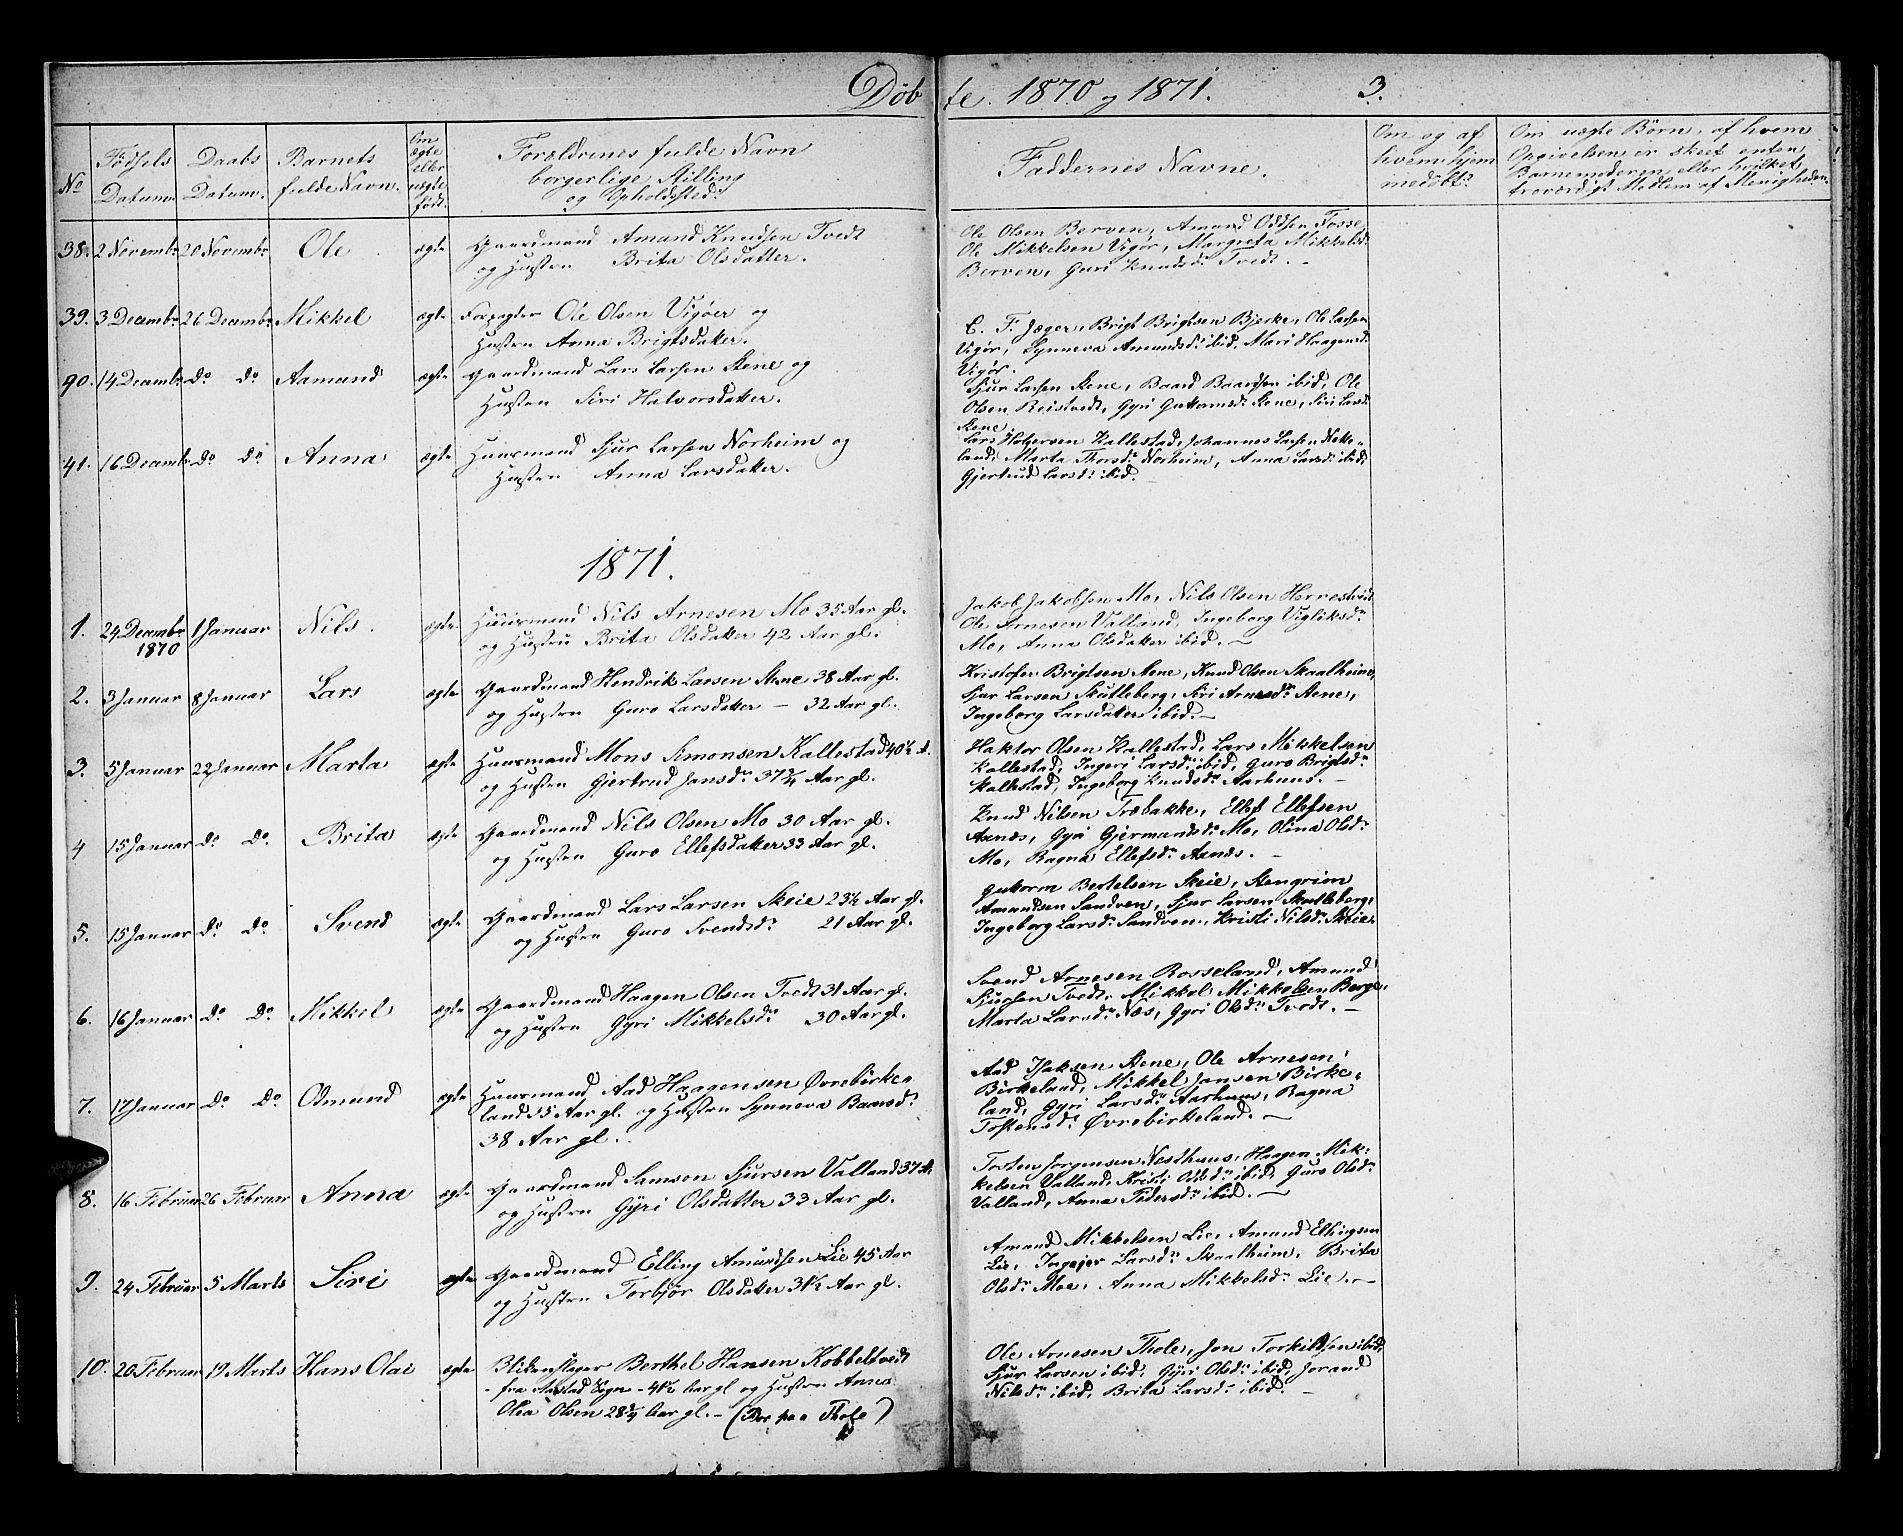 Döbte. 1870 og 1871. 3.
No
Födsels Datum.
Daabs Datum.
Barnets fulde Navn.
Om ægte eller uægte født.
Forældrenes fulde Navn
borgerlige Stilling
og Opholdsted.
Faddernes Navne.
Om og af hvem hjemmedøbt.
Om uægte Børn, af hvem
Opgivelsen er skeet enten
Barnemoderen, eller hvilket
troværdigt Medlem af Menigheden.
38. 2 Novembr 20 Novembr Ole ægte Gaardmand Amund Knudsen Tvedt
og Hustru Brita Olsdatter.
Ole Olsen Berven, Amund Oddsen Fosse
Ole Mikkelsen Vigør, Margreta Mikkelsdr
Berven, Guri Knudsdr Tvedt. -
39. 3 Decembr 26 Decembr Mikkel ægte Forpagter Ole Olsen Vigøer og
Hustru Anna Brigtsdatter.
C. F. Jæger, Brigt Brigtsen Bjerke, Ole Larsen
Vigør, Synneva Amundsdr ibid, Mari Haagensdr
Vigør.
40. 14 Decembr Do Do Aamund ægte Gaardmand Lars Larsen Stene og
Hustru Siri Halvorsdatter.
Sjur Larsen Stene, Baard Baardsen ibid, Ole
Olsen Reistvedt, Gyri Guttormsdr Stene, Siri Larsdr
Stene.
41. 16 Decembr Do Do Anna ægte Huusmand Sjur Larsen Norheim og
Hustru Anna Larsdatter.
Lars Holgersen Kallestad, Johannes Larsen Nette-
land, Marta Thorsdr Norheim, Anna Larsdr ibid,
Gjertrud Larsdr ibid.
1871.
1. 24 Decembr 1 Januar Nils. ægte Huusmand Nils Arnesen Mo 35 Aar gl.
1870
og Hustru Brita Olsdatter 42 Aar gl.
Jakob Jakobsen Mo, Nils Olsen Herrestvedt
Ole Arnesen Valland, Ingeborg Vigliksdr
Mo, Anna Olsdatter ibid. -
2. 3 Januar 8 Januar Lars ægte Gaardmand Hendrik Larsen Stene 38 Aar gl.
og Hustru Guro Larsdatter - 32 Aar gl.
Kristofer Brigtsen Stene, Knud Olsen Skaalheim,
Sjur Larsen Skutleberg, Siri Arnesdr Stene,
Ingeborg Larsdatter ibid. -
3. 5 Januar 22 Januar Marta ægte Huusmand Mons Simonsen Kallestad 40½ A.
og Hustru Gjertrud Jansdr 37¾ Aar gl.
Haktor Olsen Kallestad, Lars Mikkelsen
Kallestad, Ingeri Larsdr ibid, Guro Brigtsdr
Kallestad, Ingeborg Knudsdr Aarhuus. -
4 15 Januar Do Do Brita ægte Gaardmand Nils Olsen Mo 30 Aar gl.
og Hustru Guro Ellefsdatter 33 Aar gl.
Knud Nilsen Træbakke, Ellef Ellefsen
Axnæs, Gyri Gjermundsdr Mo, Olina Olsdr
Mo, Ragna Ellefsdr Axnæs. -
5. 15 Januar Do Do Svend ægte Gaardmand Lars Larsen Skeie 23½ Aar gl.
og Hustru Guro Svendsdr 21 Aar gl.
Guttorm Bertelsen Skeie, Stengrim
Amundsen Sandven, Sjur Larsen Skutleberg,
Ingeborg Larsdr Sandven, Kristi Nilsdr Skeie.
6. 16 Januar Do Do Mikkel ægte Gaardmand Haagen Olsen Tvedt 31 Aar gl.
og Hustru Gyri Mikkelsdr 30 Aar gl.
Svend Arnesen Rosseland, Amund
Sjursen Tvedt, Mikkel Mikkelsen Berge,
Marta Larsdr Næs, Gyri Olsdr Tvedt. -
7. 17 Januar Do Do Odmund ægte Huusmand Aad Haagensen Øvrebirke-
land 55 Aar gl. og Hustru Synneva Baarsdr
38 Aar gl.
Aad Isaksen Stene, Ole Arnesen
Birkeland, Mikkel Jansen Birke-
land, Gyri Larsdr Aarhuus, Ragna
Tostensdr Øvrebirkeland. -
8. 16 Februar 26 Februar Anna ægte Gaardmand Samson Sjursen Valland 37 A.
og Hustru Gyri Olsdatter 33 Aar gl.
Tosten Jorgensen Nesthuus, Haagen Mik-
kelsen Valland, Kristi Oddsdr ibid, Guro Olsdr
Valland, Anna Pedersdr ibid. -
9. 24 Februar 5 Marts Siri ægte Gaardmand Elling Amundsen Lie 45 Aar
og Hustru Torbjør Olsdatter 31½ Aar gl.
Amund Mikkelsen Lie, Amund Ellingsen
Lie, Ingejer Larsdr Skaalheim, Brita
Olsdr Moe, Anna Mikkelsdr Lie. -
10. 20 Februar 19 Marts Hans Olai ægte Blikkenslager Berthel Hansen Kobbeltvedt
fra Aastad Sogn - 41½ Aar gl og Hustru Anna
Olea Olsen 28¾ Aar gl. - (Bor paa Thole)
Ole Arnesen Thole, Jon Torkildsen ibid,
Sjur Larsen ibid, Gyri Olsdr ibid, Jorand
Nilsdr ibid, Brita Larsdr ibid. -